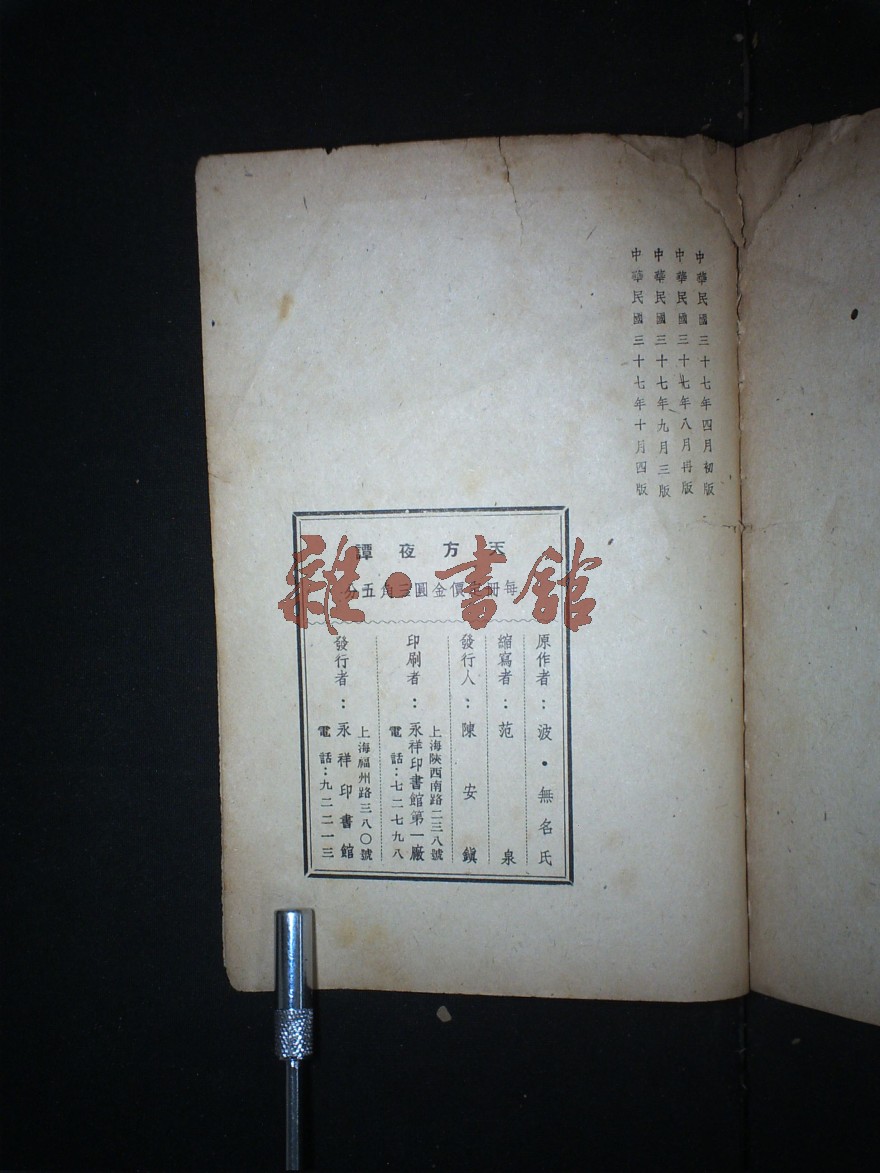 中華民國三十七年四月初版
中華民國三十七年八月再版
中華民國三十七年九月三版
中華民國三十七年十月四版
天方夜譚
每冊定價金圓三角五分
原作者：波·無名氏
縮寫者：范泉
發行人：陳安鎮
印刷者：永祥印書館第一廠
上海陝西南路二三八號
電話：七二七九八
發行者：永祥印書館
上海福州路三八〇號
電話：九二二一三
雜·書館